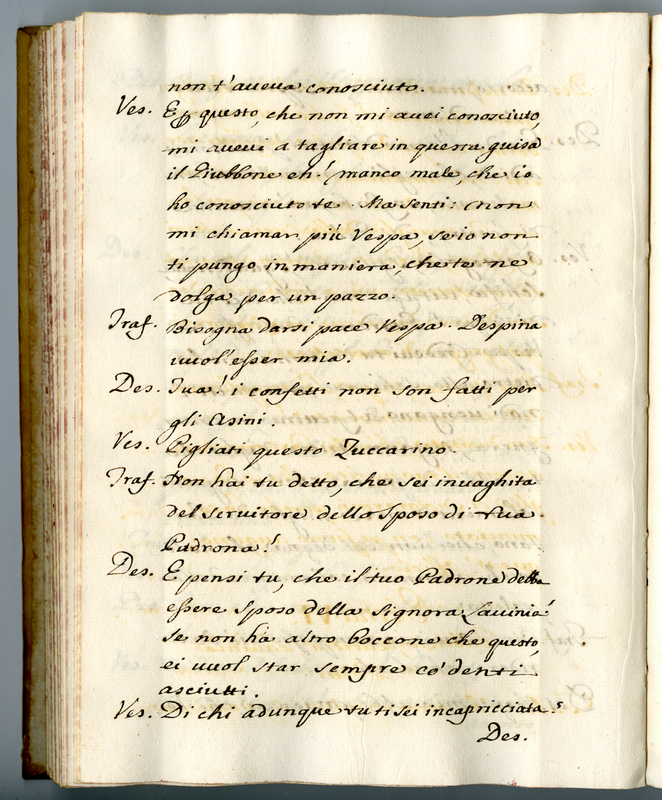 non t'aveva conosciuto.
Ves. E questo, che non mi avei conosciuto,
mi avevi a tagliare in questa guisa
il Giubbone eh! manco male, che io
ho conosciuto te. Ma senti: non
mi chiamar più Vespa, se io non
ti pungo in maniera, che te ne
dolga per un pazzo.
Traf. Bisogna darsi pace Vespa. Despina
vuol'esser mia.
Des. Tua! i confetti non son fatti per
gli Asini.
Ves. Pigliati questo Zuccarino.
Traf. Non hai tu detto, che sei invaghita
del servitore dello Sposo di tua
Padrona!
Des. E pensi tu, che il tuo Padrone debba
essere sposo della Signora Lavinia!
se non ha altro boccone che questo,
ei vuol star sempre co' denti
asciutti.
Ves. Di chi adunque tu ti sei incapricciata?
Des.